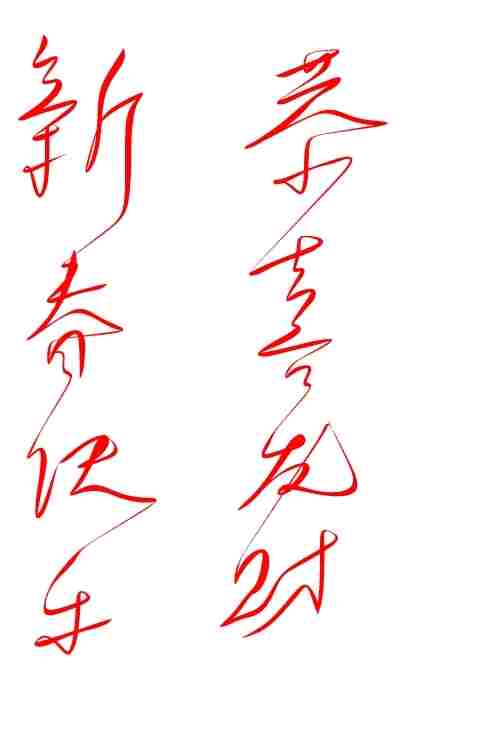 恭喜发财
新春快乐